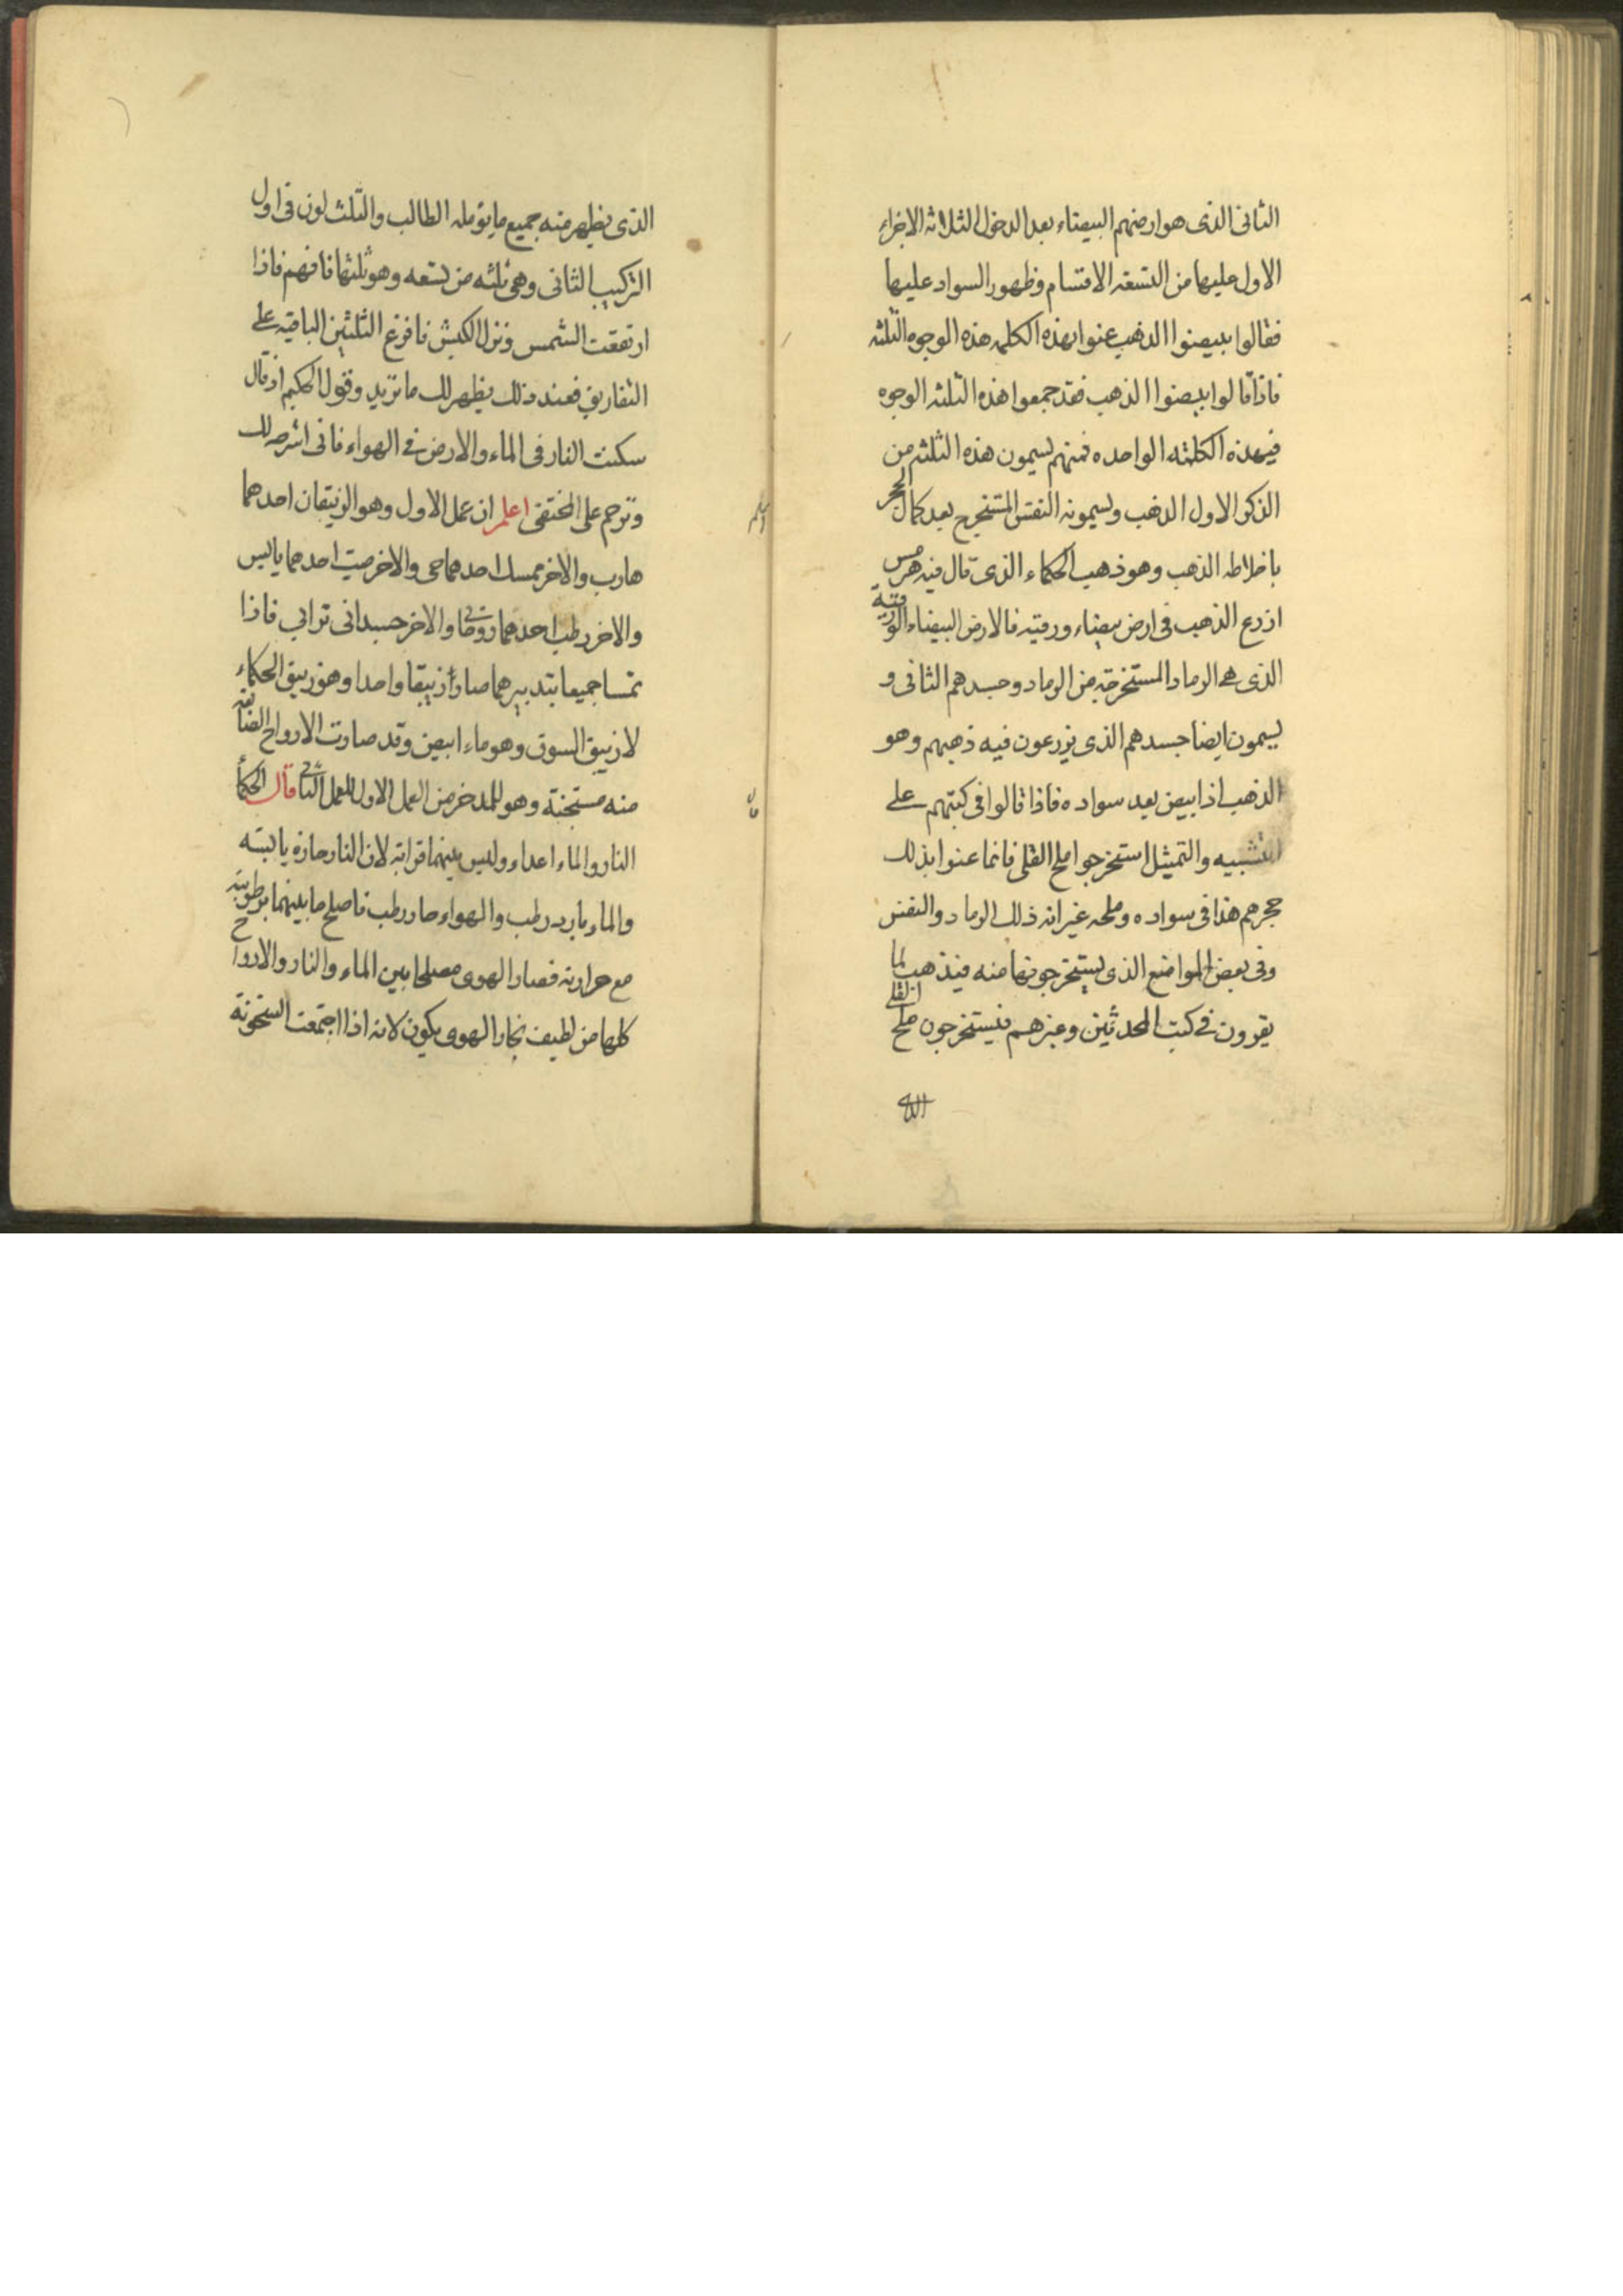 الثانى الذى هو ارضهم البيضاء بعد الدخول الثلاثه الاجزاء
الاول عليها من التسعة الاقتسام وظهور السواد عليها
فقالوا بيضوا الذهب عنوا بهذه الكلمه هذه الوجوه الثلثه
فاذا قالوا بيضوا الذهب فقد جمعوا هذه الثلثه الوجوه
فى هذه الكلمته الواحده فمنهم يسمون هذه الثلثه من
الذكر الاول الذهب ويسمونه النفس المستخرج بعد كمال الحجر
باخلاطه الذهب وهو ذهب الحكماء الذى قال فيه هرمس
ازرع الذهب فى ارض بيضاء ورقيه فالارض البيضاء الورقية
الذى هى الرماد المستخرجة من الرماد وجسدهم الثانى و
يسمون ايضا جسدهم الذى يزرعون فيه ذهبهم وهو
الذهب اذا ابيض بعد سواده فاذا قالوا فى كتبهم على
التشبيه والتمثيل استخرجوا ملح القلى فانما عنوا بذلك
حجرهم هذا فى سواده وملحه غير انه ذلك الرماد والنفس
وفى بعض المواضع الذى يستخرجونها منه فيذهب لما
يقرون فى كتب المحدثين وغيرهم فيستخرجون ملح القلى
الذى يظهر منه جميع ما يؤمله الطالب والثلث لون فى اول
التركيب الثانى وهى ثلثه من تسعه وهو ثلثها فافهم فاذا
ارتفعت الشمس ونزل الكبش فافرغ الثلثين الباقيه على
التفاريق فعند ذلك يظهر لك ما تريد وقول الحكيم اذ قال
سكنت النار فى الماء والارض فى الهواء فانى اشرحه لك
وترحم على المختفى اعلم ان عمل الاول وهو الزيبقان احدهما
هارب والاخر ممسك احدهما حى والاخر ميت احدهما يابس
والاخر رطب احدهما روحانى والاخر جسدانى ترابى فاذا
تمسا جميعا بتدبيرهما صارا زيبقا واحدا وهو زيبق الحكماء
لا زيبق السوق وهو ماء ابيض وقد صارت الارواح الصابغه
منه مستجنة وهو للمدخر من العمل الاول للعمل الثانى قال الحكما
النار والماء اعداء وليس بينهما قرابة لان النار حارة يابسته
والماء بارد رطب والهواء حار رطب فاصلح ما بينهما برطوبته
مع حرارته فصار الهوى مصلحا بين الماء والنار والارواح
كلها من لطيف بخار الهوى يكون لانه اذا اجتمعت السخونة